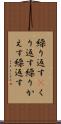 繰り返す く
り返す繰りか
えす繰返す